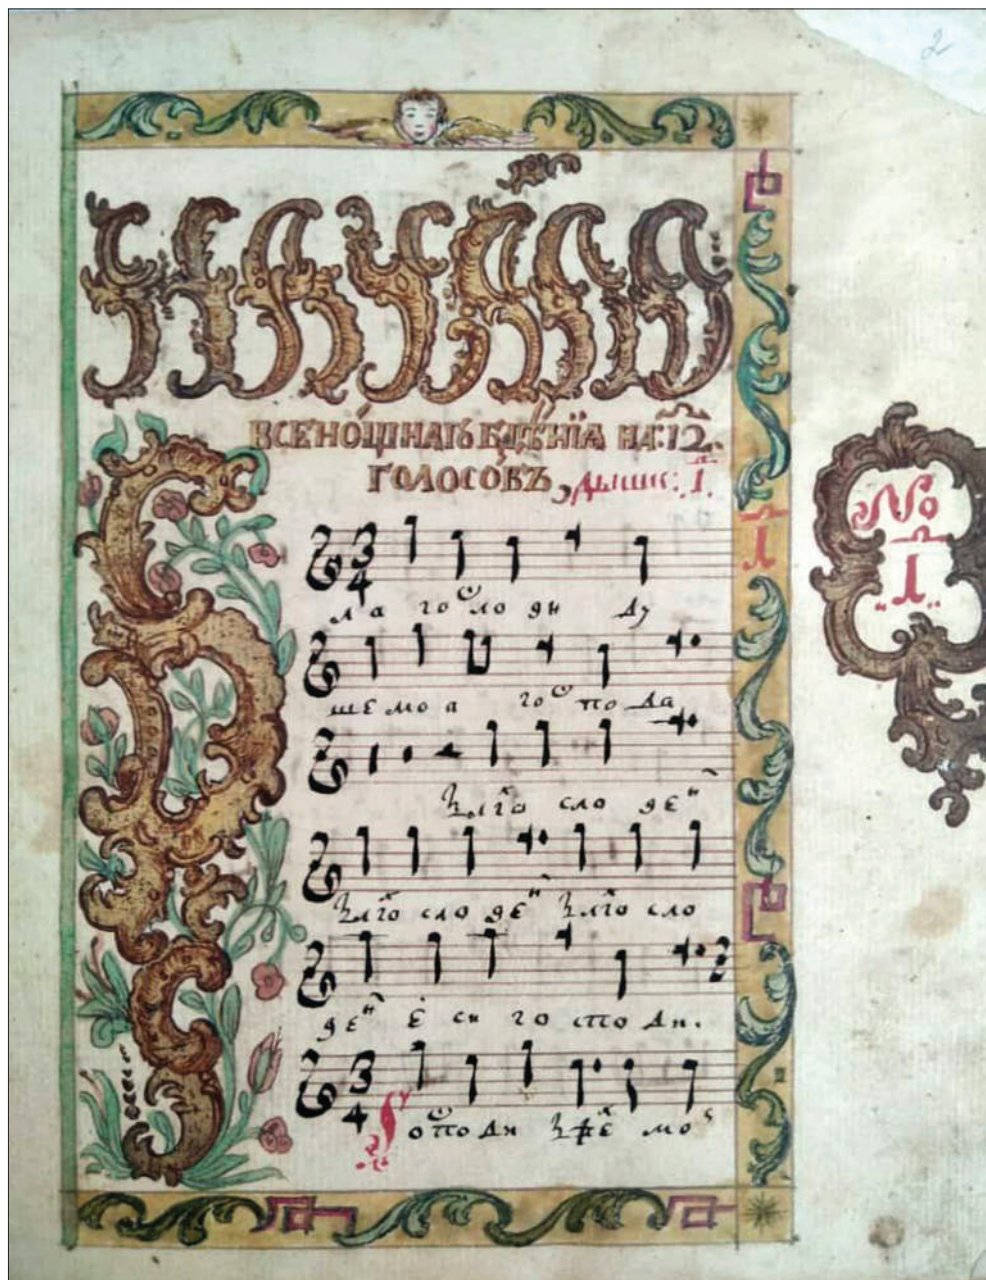 2
НАЧАЛО
ВСЕНО́ЩНАГѠ БДѢ́НЇѦ НА: 12.
ГОЛОСОВЪ, дышк: 1.
No
1
1
3
4
ла го сло ви ду
ше моя го спо да
Блг҃о сло веⷩ҇
Блг҃о сло веⷩ҇ Блг҃о сло
веⷩ҇ е си го спо ди.
3
4
Господи Бж҃е мо